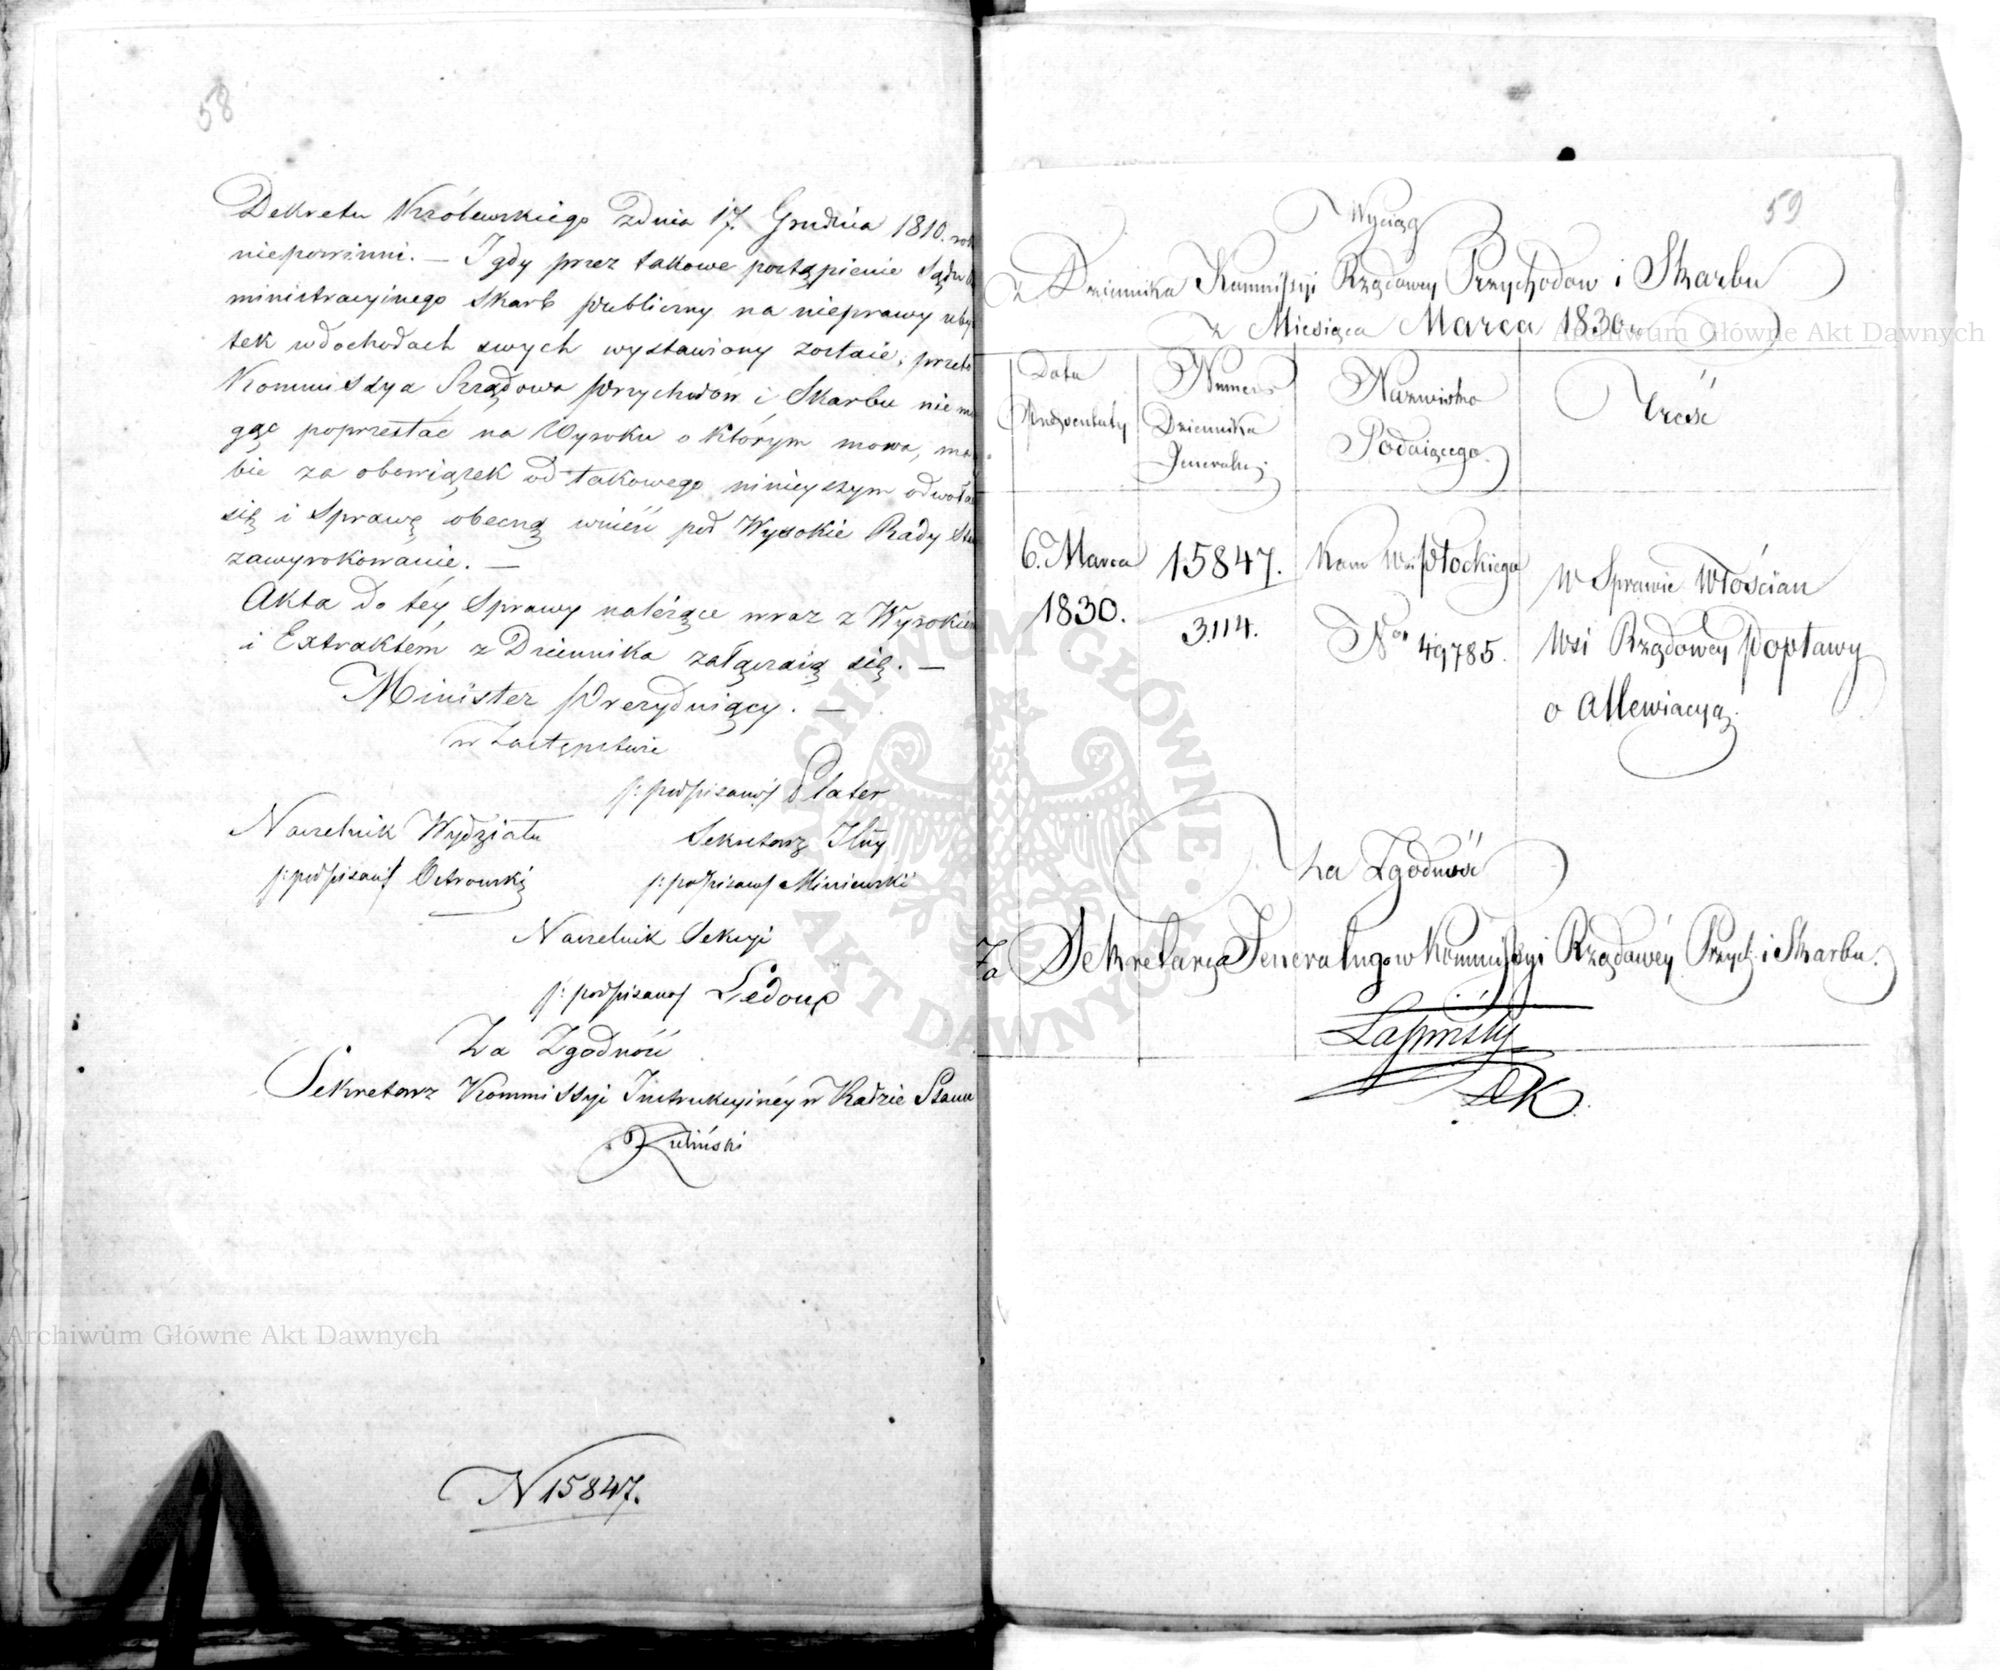 58
Dekretu Królewskiego z dnia 17. Grudnia 1810. rok
niepowinni. — I gdy przez takowe postąpienie Sądu
ministracyinego Skarb publiczny na nieprawy uby
tek w dochodach swych wystawiony zostaie; przeto
Kommissya Rządowa Przychodów i Skarbu nie mo
gąc poprzestać na Wyroku o którym mowa, ma
bie za obowiązek od takowego ninieyszym odwołać
się i Sprawę obecną wnieść pod Wysokie Rady Sta
zawyrokowanie. —
Akta do téy Sprawy należące wraz z Wyrokiem
i Extraktem z Dziennika załączaią się. —
Minister Prezyduiący. —
w Zastępstwie
/: podpisano/ Plater
Naczelnik Wydziału
Sekretarz Jlny
/: podpisano/ Ostrowski
/: podpisano/ Miniewski
Naczelnik Sekcyi
/: podpisano/ Ledoux
Za Zgodność
Sekretarz Kommissyi Instrukcyinéy w Radzie Stanu
N 15847.
59
Wyciąg
z Dziennika Kommissyi Rządowey Przychodow i Skarbu
z Miesiąca Marca 1830 r.
Data
Prezentaty
Numer
Dziennika
Jeneralnej
Nazwisko
Podaiącego
Treść
6. Marca
1830.
15847.
3114.
Kom Wa Płockiego
No 49785.
W Sprawie Włościan
Wsi Rządowey Popławy
o Allewiacyą.
Za Zgodność
Za Sekretarza Jeneralnego w Kommissyi Rządowéy Przych: i Skarbu.
Archiwum Główne Akt Dawnych
Archiwum Główne Akt Dawnych
ARCHIWUM GŁÓWNE
AKT DAWNYCH